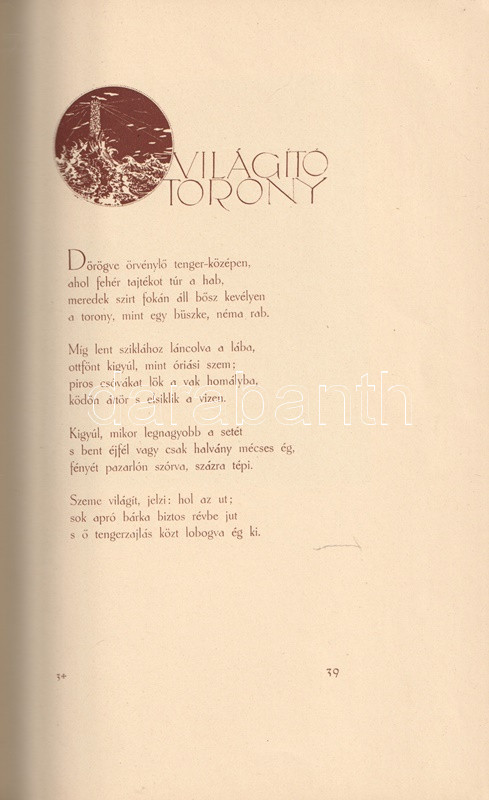 VILÁGÍTÓ
TORONY
Dörögve örvénylő tenger-középen,
ahol fehér tajtékot túr a hab,
meredek szirt fokán áll bősz kevélyen
a torony, mint egy büszke, néma rab.
Mig lent sziklához láncolva a lába,
ottfönt kigyúl, mint óriási szem;
piros csóvákat lök a vak homályba,
ködön áttör s elsiklik a vizen.
Kigyúl, mikor legnagyobb a setét
s bent éjfél vagy csak halvány mécses ég,
fényét pazarlón szórva, százra tépi.
Szeme világít, jelzi: hol az ut;
sok apró bárka biztos révbe jut
s ő tengerzajlás közt lobogva ég ki.
darabanth
3*
39